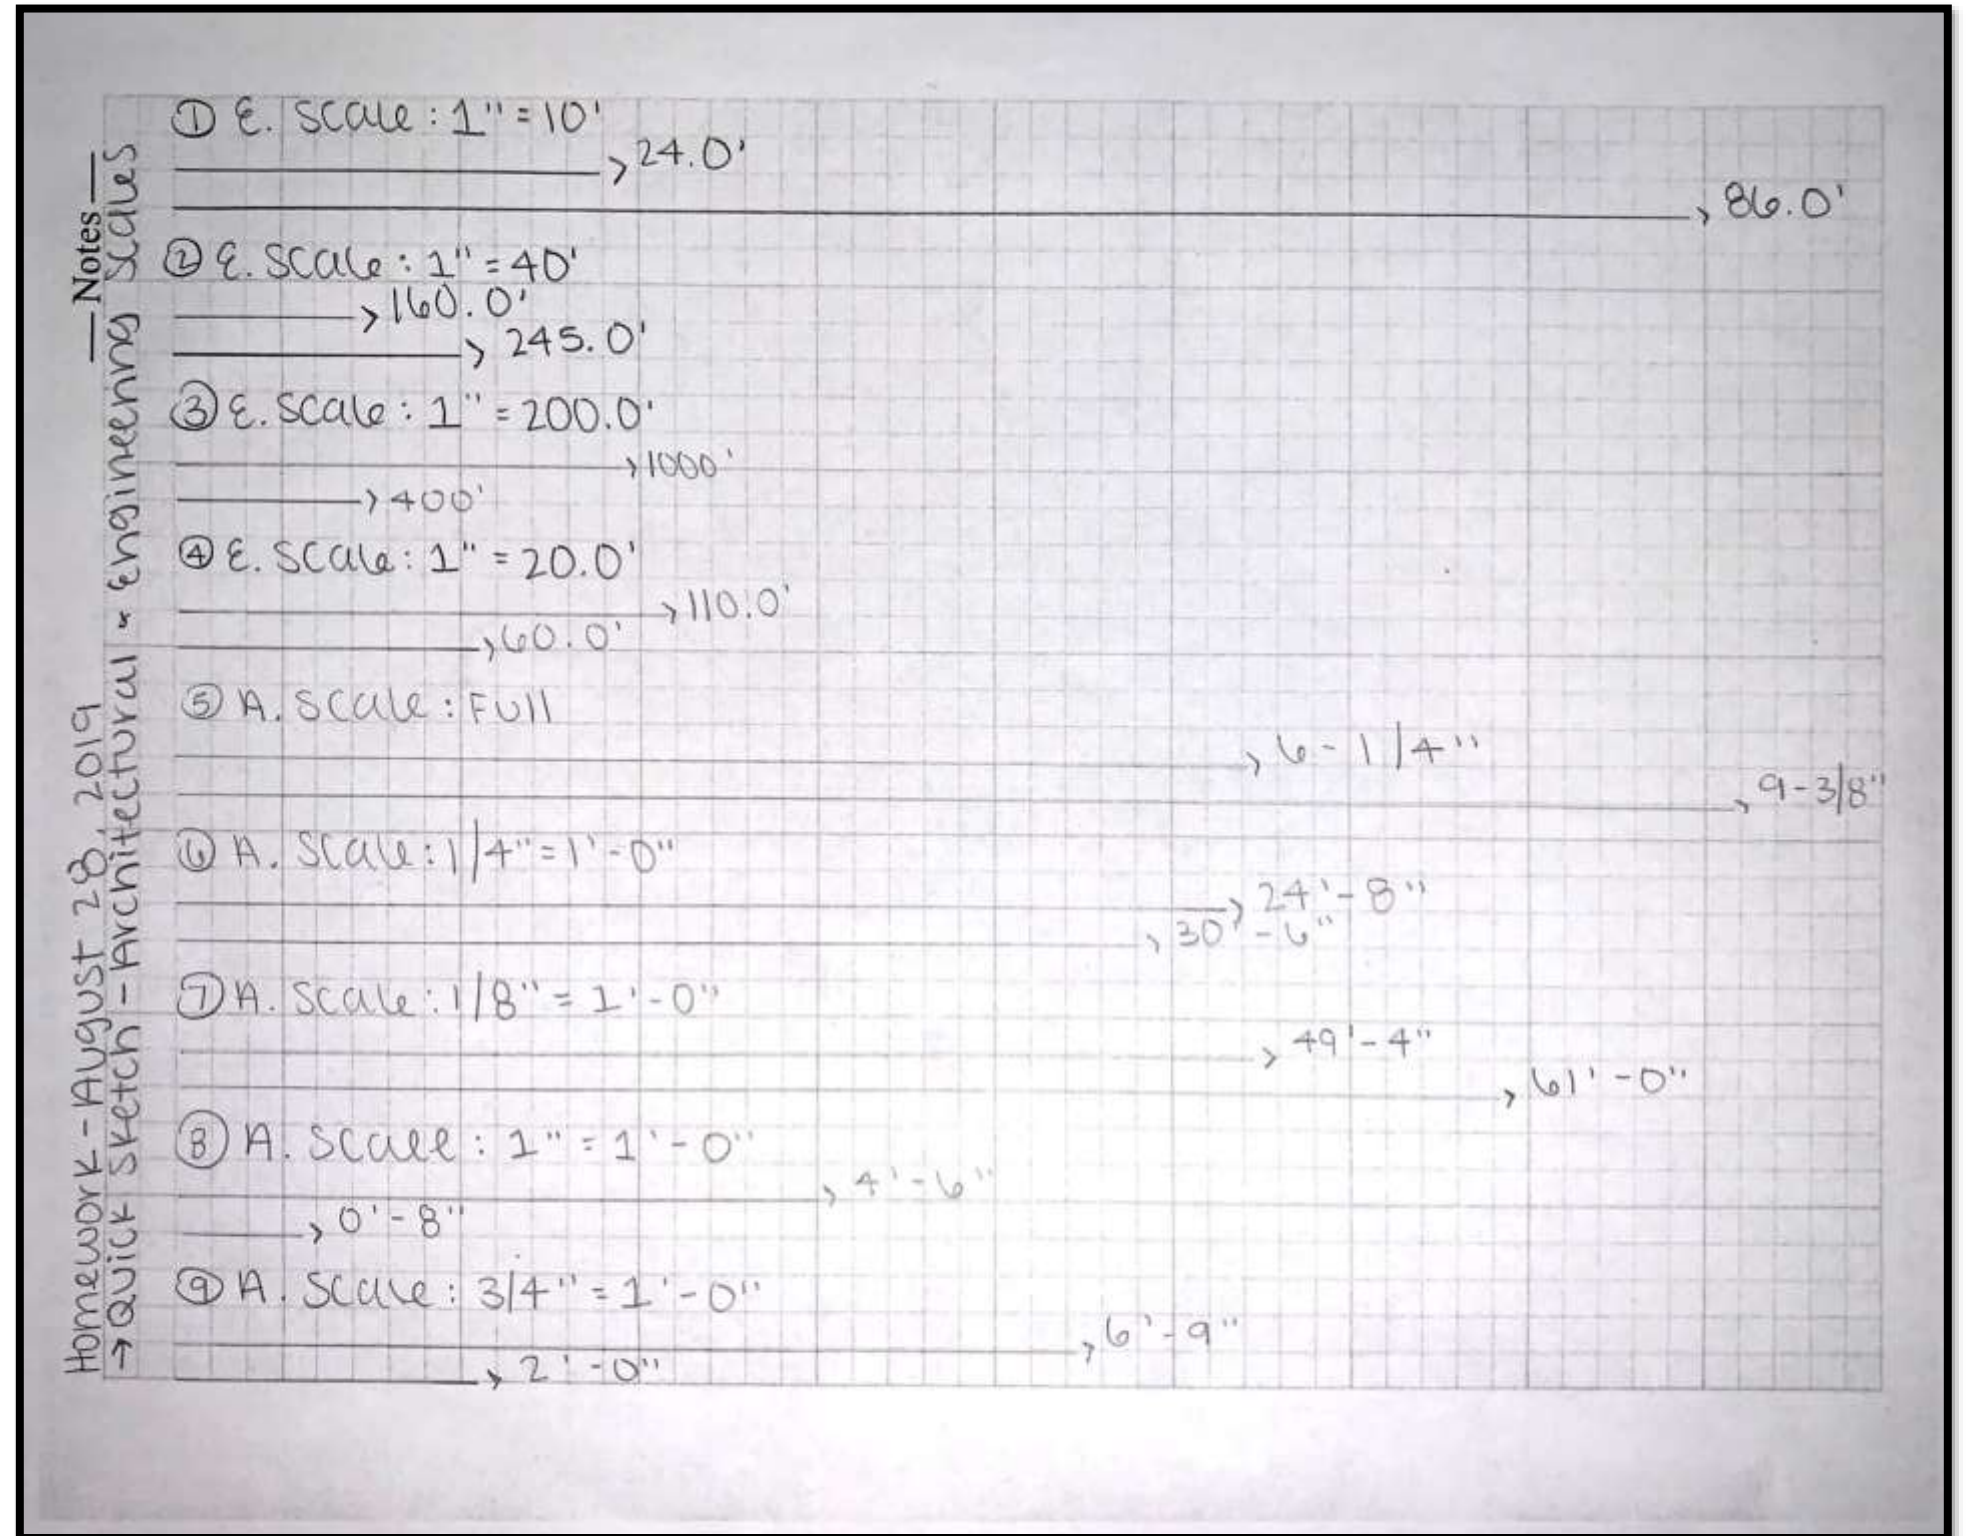 — Notes —
Homework - August 28, 2019
→ Quick Sketch - Architectural & Engineering Scales
① E. Scale: 1" = 10'
24.0'
86.0'
② E. Scale: 1" = 40'
160.0'
245.0'
③ E. Scale: 1" = 200.0'
1000'
400'
④ E. Scale: 1" = 20.0'
110.0'
60.0'
⑤ A. Scale: Full
6-1/4"
9-3/8"
⑥ A. Scale: 1/4" = 1'-0"
24'-8"
30'-6"
⑦ A. Scale: 1/8" = 1'-0"
49'-4"
61'-0"
⑧ A. Scale: 1" = 1'-0"
4'-6"
0'-8"
⑨ A. Scale: 3/4" = 1'-0"
6'-9"
2'-0"